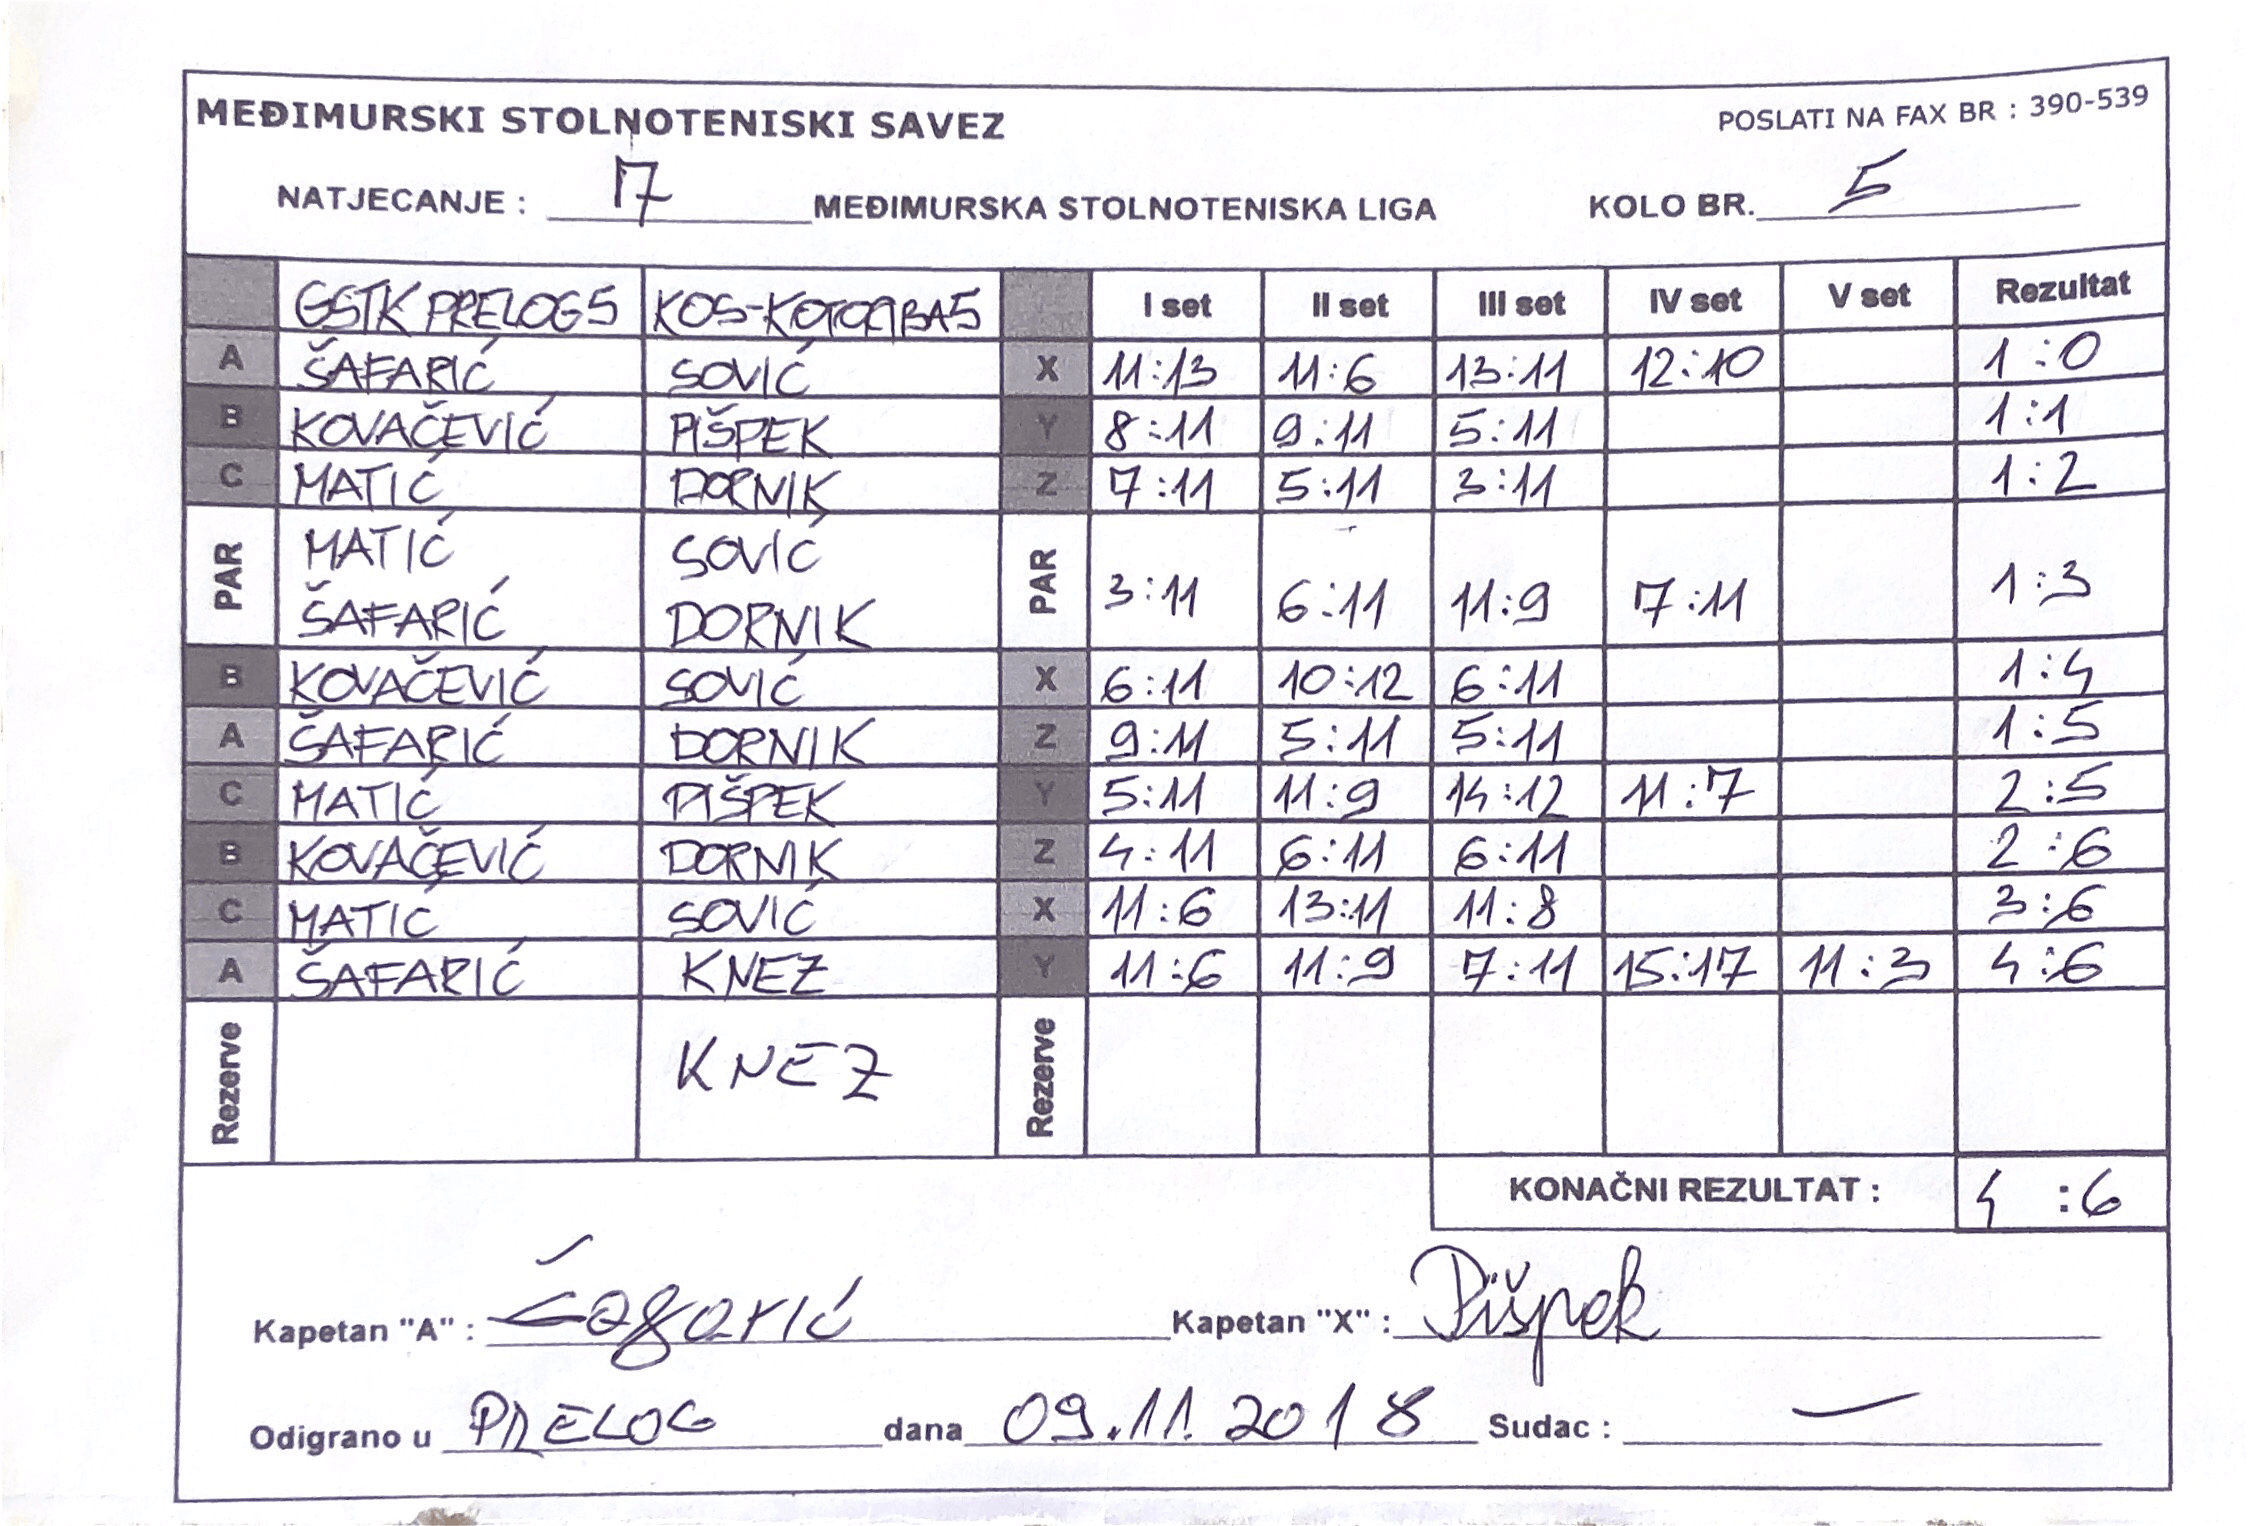 MEĐIMURSKI STOLNOTENISKI SAVEZ POSLATI NA FAX BR : 390-539
NATJECANJE : 17 MEĐIMURSKA STOLNOTENISKA LIGA KOLO BR. 5
GSTK PRELOG 5 KOS-KOTORIBA 5 I set II set III set IV set V set Rezultat
A ŠAFARIĆ SOVIĆ X 11:13 11:6 13:11 12:10 1:0
B KOVAČEVIĆ PIŠPEK Y 8:11 9:11 5:11 1:1
C MATIĆ DORNIK Z 7:11 5:11 3:11 1:2
PAR MATIĆ SOVIĆ PAR
ŠAFARIĆ DORNIK 3:11 6:11 11:9 7:11 1:3
B KOVAČEVIĆ SOVIĆ X 6:11 10:12 6:11 1:4
A ŠAFARIĆ DORNIK Z 9:11 5:11 5:11 1:5
C MATIĆ PIŠPEK Y 5:11 11:9 14:12 11:7 2:5
B KOVAČEVIĆ DORNIK Z 4:11 6:11 6:11 2:6
C MATIĆ SOVIĆ X 11:6 13:11 11:8 3:6
A ŠAFARIĆ KNEZ Y 11:6 11:9 7:11 15:17 11:3 4:6
Rezerve KNEZ Rezerve
KONAČNI REZULTAT : 4 :6
Kapetan "A" : Šafarić Kapetan "X" : Pišpek
Odigrano u PRELOG dana 09.11.2018 Sudac : —